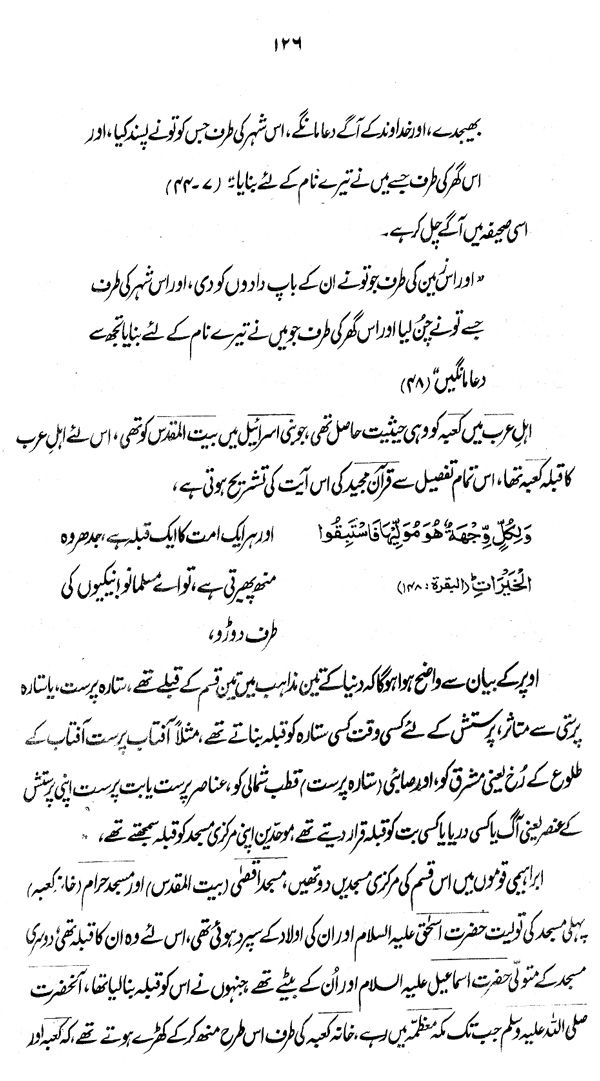 ۱۲۶
بھیجدے، اور خداوند کے آگے دعا مانگے، اس شہر کی طرف جس کو تو نے پسند کیا، اور
اس گھر کی طرف جسے میں نے تیرے نام کے لئے بنایا" (۷-۴۴)
اسی صحیفہ میں آگے چل کر ہے۔
"اور اس زمین کی طرف جو تو نے ان کے باپ دادوں کو دی، اور اس شہر کی طرف
جسے تو نے چن لیا اور اس گھر کی طرف جو میں نے تیرے نام کے لئے بنایا تجھ سے
دعا مانگیں" (۴۸)
اہل عرب میں کعبہ کو وہی حیثیت حاصل تھی، جو بنی اسرائیل میں بیت المقدس کو تھی، اس لئے اہل عرب
کا قبلہ کعبہ تھا، اس تمام تفصیل سے قرآن مجید کی اس آیت کی تشریح ہوتی ہے،
وَلِكُلٍّ وِّجْهَةٌ هُوَ مُوَلِّيْهَا فَاسْتَبِقُوا اور ہر ایک امت کا ایک قبلہ ہے، جدھر وہ
الْخَيْرَاتِ (البقرة: ۱۴۸) منھ پھیرتی ہے، تو اے مسلمانو! نیکیوں کی
طرف دوڑو،
اوپر کے بیان سے واضح ہوا ہوگا کہ دنیا کے تین مذاہب میں تین قسم کے قبلے تھے، ستارہ پرست، یا ستارہ
پرستی سے متاثر، پرستش کے لئے کسی وقت کسی ستارہ کو قبلہ بناتے تھے، مثلاً آفتاب پرست آفتاب کے
طلوع کے رُخ یعنی مشرق کو، اور صابئی (ستارہ پرست) قطب شمالی کو، عناصر پرست یا بت پرست اپنی پرستش
کے عنصر یعنی آگ یا کسی دریا یا کسی بت کو قبلہ قرار دیتے تھے، موحدین اپنی مرکزی مسجد کو قبلہ سمجھتے تھے،
ابراہیمی قوموں میں اس قسم کی مرکزی مسجدیں دو تھیں، مسجد اقصٰی (بیت المقدس) اور مسجد حرام (خانہ کعبہ)
پہلی مسجد کی تولیت حضرت اسحٰق علیہ السلام اور ان کی اولاد کے سپرد ہوئی تھی، اس لئے وہ ان کا قبلہ تھی، دوسری
مسجد کے متولّی حضرت اسماعیل علیہ السلام اور اُن کے بیٹے تھے، جنہوں نے اس کو قبلہ بنالیا تھا، آنحضرت
صلی اللہ علیہ وسلم جب تک مکہ معظمہ میں رہے، خانہ کعبہ کی طرف اس طرح منھ کرکے کھڑے ہوتے تھے، کہ کعبہ اور